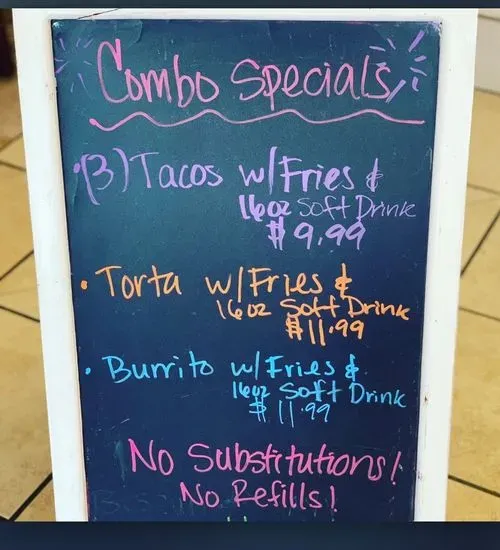 Combo Specials
• (3) Tacos w/Fries &
16oz Soft Drink
$9.99
• Torta w/Fries &
16oz Soft Drink
$11.99
• Burrito w/Fries &
16oz Soft Drink
$11.99
No Substitutions!
No Refills!